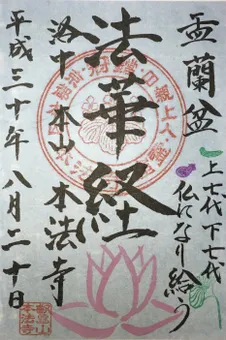 盂蘭盆
上七代下七代
仏になり給う
法華経
洛中本山 本法寺
平成三十年八月二十日
叡昌山
本法寺